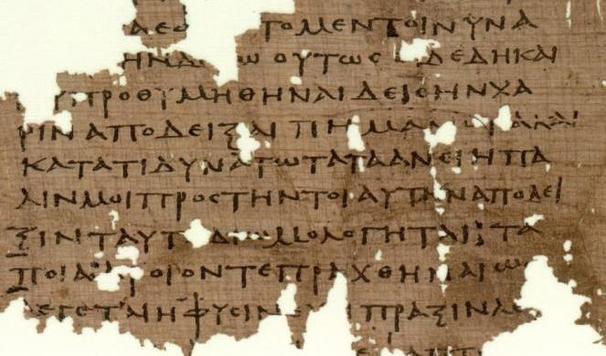 ΤΟΜΕΝΤΟΙΝΥΝΑ
ΗΝΔ Ω ΟΥΤΩΣ ΔΕΔΗΚΑΙ
ΠΡΟΘΥΜΗΘΗΝΑΙΔΕΙΣΗΝΧΑ
ΡΙΝΑΠΟΔΕΙΞΑΙ ΠΗΜΑ
ΚΑΤΑΤΙΔΥΝΑΤΩΤΑΤΑΑΝΕΙΗΠΑ
ΛΙΝΜΟΙΠΡΟΣΤΗΝΤΟΙΑΥΤΗΝΑΠΟΔΕΙ
ΞΙΝΤΑΥΤ ΔΙΟΜΟΛΟΓΗΤΑΙ ΤΑ
ΠΟΙΑ ΟΙΟΝΤΕΠΡΑΧΘΗΝΑΙΩΣ
ΛΕΓΕΤ ΗΦΥΣΙΝ ΠΡΑΞΙΝΛΕ